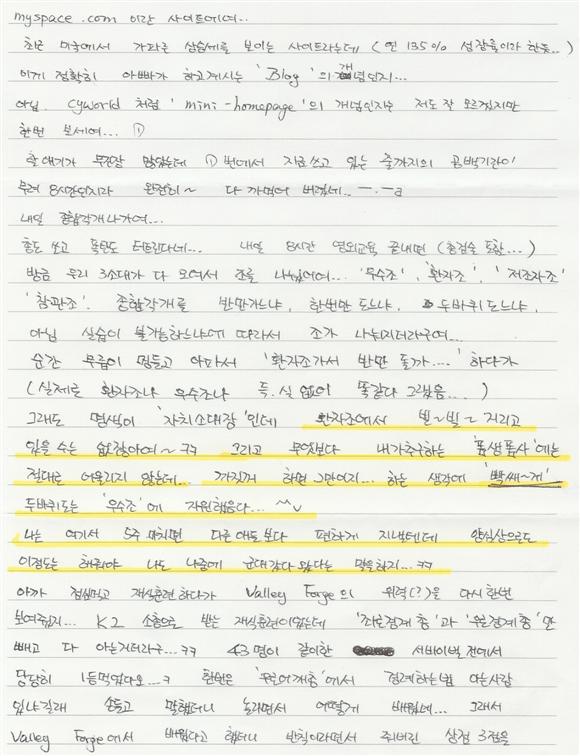 myspace.com 이란 사이트에여..
최근 미국에서 가파른 상승세를 보이는 사이트라는데 (연 135% 성장률이라 한듯..)
이게 정확히 아빠가 하고계시는 'Blog'의 개념인지...
아님 cyworld 처럼 'mini-homepage'의 개념인지는 저도 잘 모르겠지만
한번 보세여... ①
할 얘기가 무진장 많았는데 ① 번에서 지금쓰고 있는 줄까지의 공백기간이
무려 8시간인지라 완전히~ 다 까먹어 버렸네.. ㅡ.ㅡa
내일 종합각개 나가여...
총도 쏘고 폭탄도 터트린다네... 내일 8시간 야외교육 끝내면 (총검술 포함...)
방금 우리 3소대가 다 모여서 조를 나눴어여... '우수조', '환자조', '저조자조'
'참관조'. 종합각개를 반만가느냐, 한번만 도느냐, 두바퀴 도느냐,
아님 실습이 불가능하느냐에 따라서 조가 나눠지더라구여...
순간 무릎이 멍들고 아파서 '환자조가서 반만 돌까...' 하다가
(실제로 환자조나 우수조나 득.실 없이 똑같다 그랬음...)
그래도 명색이 '자치소대장'인데 환자조에서 빌~빌~ 거리고
있을 수는 없잖아여~ ㅋㅋ 그리고 무엇보다 내가추구하는 '폼생폼사'에는
절대로 어울리지 않는데... 까짓꺼 하면 그만이지... 하는 생각에 '빡쎄~게'
두바퀴도는 '우수조'에 자원했음다... ^^v
나는 여기서 5주 마치면 다른애들보다 편하게 지낼텐데 양심상으로도
이정도는 해줘야 나도 나중에 군대갔다 왔다는 말을하지... ㅋㅋ
아까 점심먹고 제식훈련하다가 Valley Forge의 위력(?)을 다시한번
보여줬지... K2 소총으로 받는 제식훈련이었는데 '좌로어깨총'과 '우로어깨총'만
빼고 다 아는거더라구...ㅋㅋ 43명이 같이한 서바이벌전에서
당당히 1등먹었다오...ㅋ 한번은 '우로어깨총'에서 경례하는법 아는사람
있냐길래 손들고 말했더니 놀라면서 어떻게 배웠녜... 그래서
Valley Forge에서 배웠다고 했더니 반칙이라면서 줘버린 상점 3점을